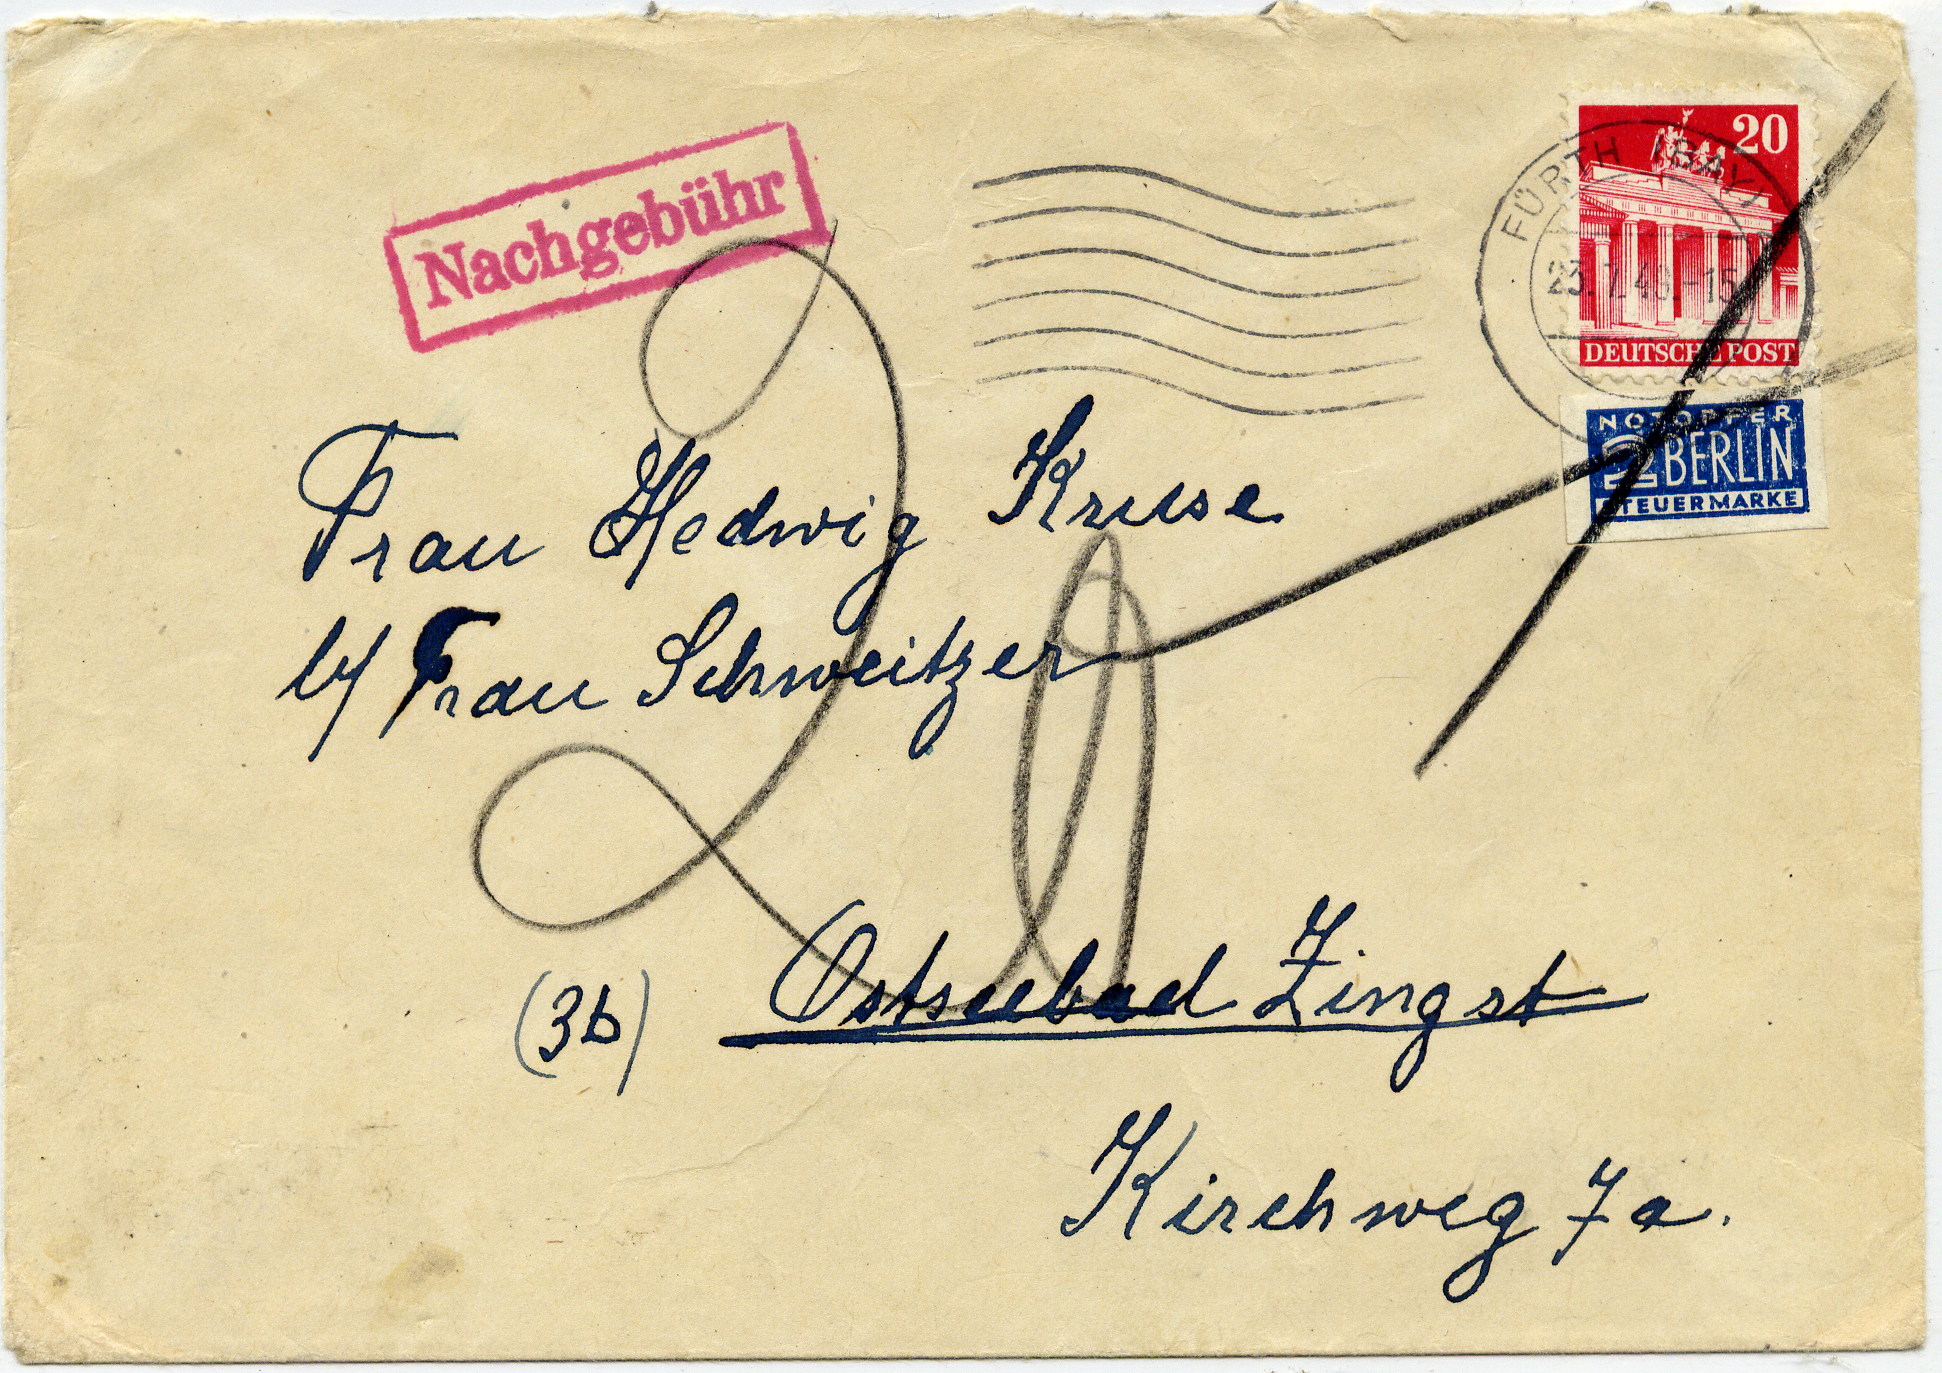 Nachgebühr
20
DEUTSCHE POST
FÜRTH (BAY)
23.7.49.-15
NOTOPFER
2 BERLIN
STEUERMARKE
Frau Hedwig Kruse
b/ Frau Schweitzer
20
(3b) Ostseebad Zingst
Kirchweg 7a.